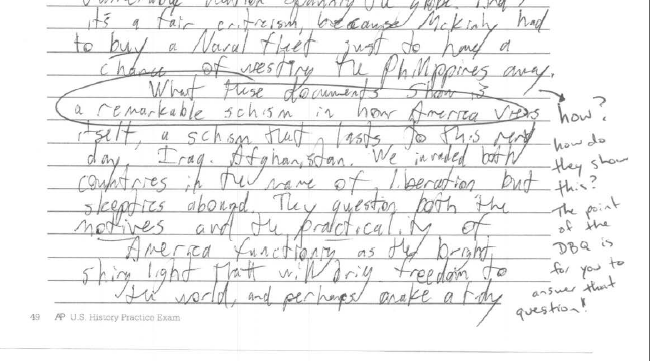 it's a fair criticism, because Mckinly had
to buy a Naval fleet just to have a
chance of westing the Philippines away.
What these documents show is
a remarkable schism in how America views
itself, a schism that lasts to this very
day, Iraq. Afghanistan. We invaded both
countries in the name of liberation but
skeptics abound. They question both the
motives and the practicality of
America functioning as the bright
shiny light that will bring freedom to
the world, and perhaps make a tidy
how?
how do
they show
this?
The point
of the
DBQ is
for you to
answer that
question!
49 AP U.S. History Practice Exam